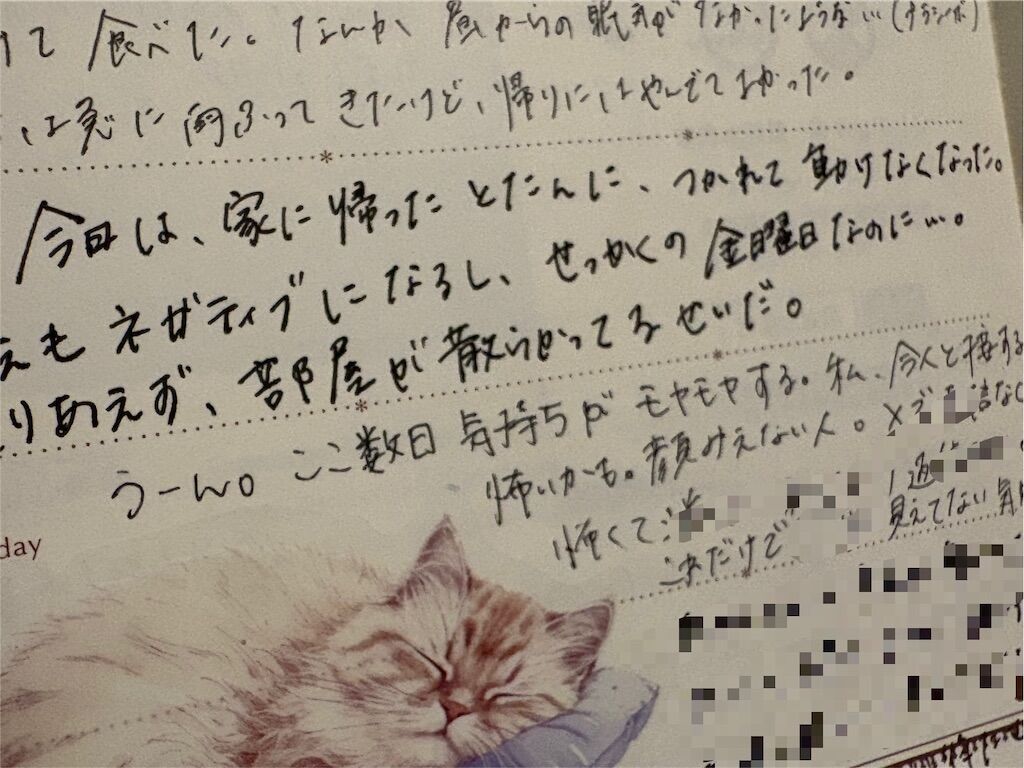 て食べた。なんか昼からの眠気がなかったような…(プラシーボ)
は急に雨ふってきたけど、帰りにはやんでてよかった。
今日は、家に帰ったとたんに、つかれて動けなくなった。
えもネガティブになるし、せっかくの金曜日なのに…。
りあえず、部屋が散らかってるせいだ。
うーん。ここ数日気持ちがモヤモヤする。私、今人と接する
怖いかも。顔みえない人。メ
怖くて
これだけで 見えてない気
day